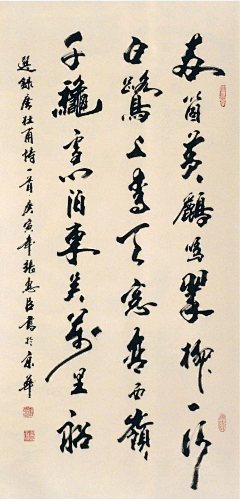 兩箇黄鸝鳴翠柳一行
白鷺上青天窓含西嶺
千穐雪门泊東吴萬里船
選録唐杜甫詩一首庚寅年張惠臣書於京華